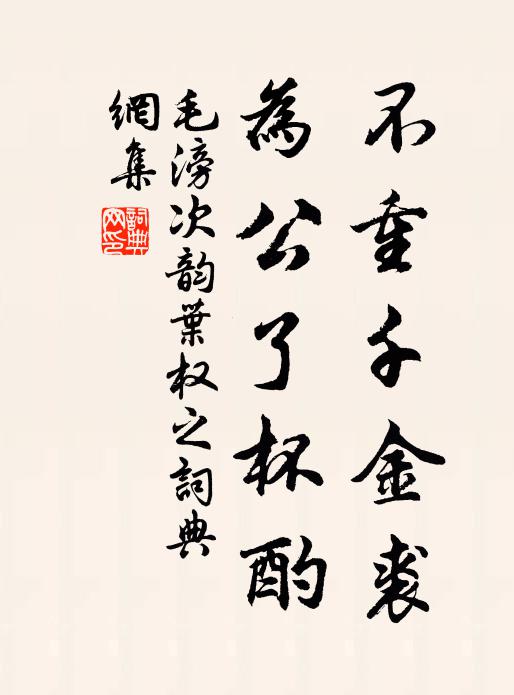 不重千金裘
為公了杯酌
毛滂次韵葉权之詞典
網集
詞典
网印